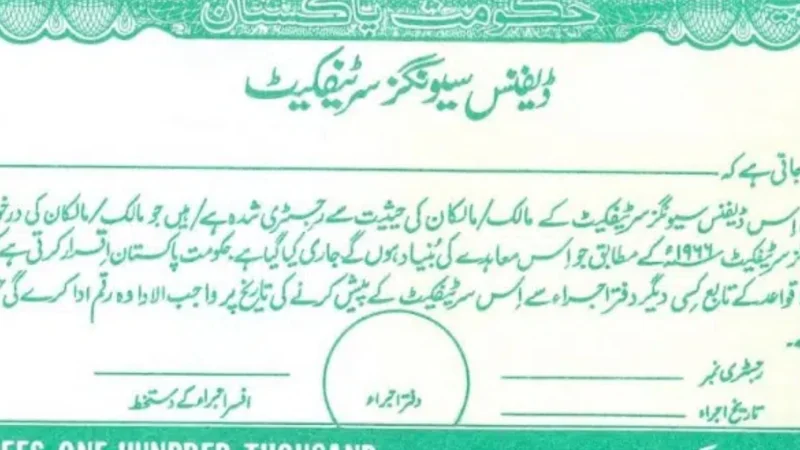 حکومت پاکستان
ڈیفنس سیونگز سرٹیفکیٹ
جاتی ہے کہ
اس ڈیفنس سیونگز سرٹیفکیٹ کے مالک/مالکان کی حیثیت سے رجسٹری شدہ ہے/ہیں جو مالک/مالکان کی
سرٹیفکیٹ ۱۹۶۶ء کے مطابق جو اس معاہدے کی بنیاد ہوں گے جاری کیا گیا ہے حکومت پاکستان اقرار کرتی ہے
قواعد کے تابع کسی دیگر دفتر اجراء سے اس سرٹیفکیٹ کے پیش کرنے کی تاریخ پر واجب الادا وہ رقم ادا کرے گی
رجسٹری نمبر
تاریخ اجراء
دفتر اجراء
افسر اجراء کے دستخط
ONE HUNDRED THOUSAND